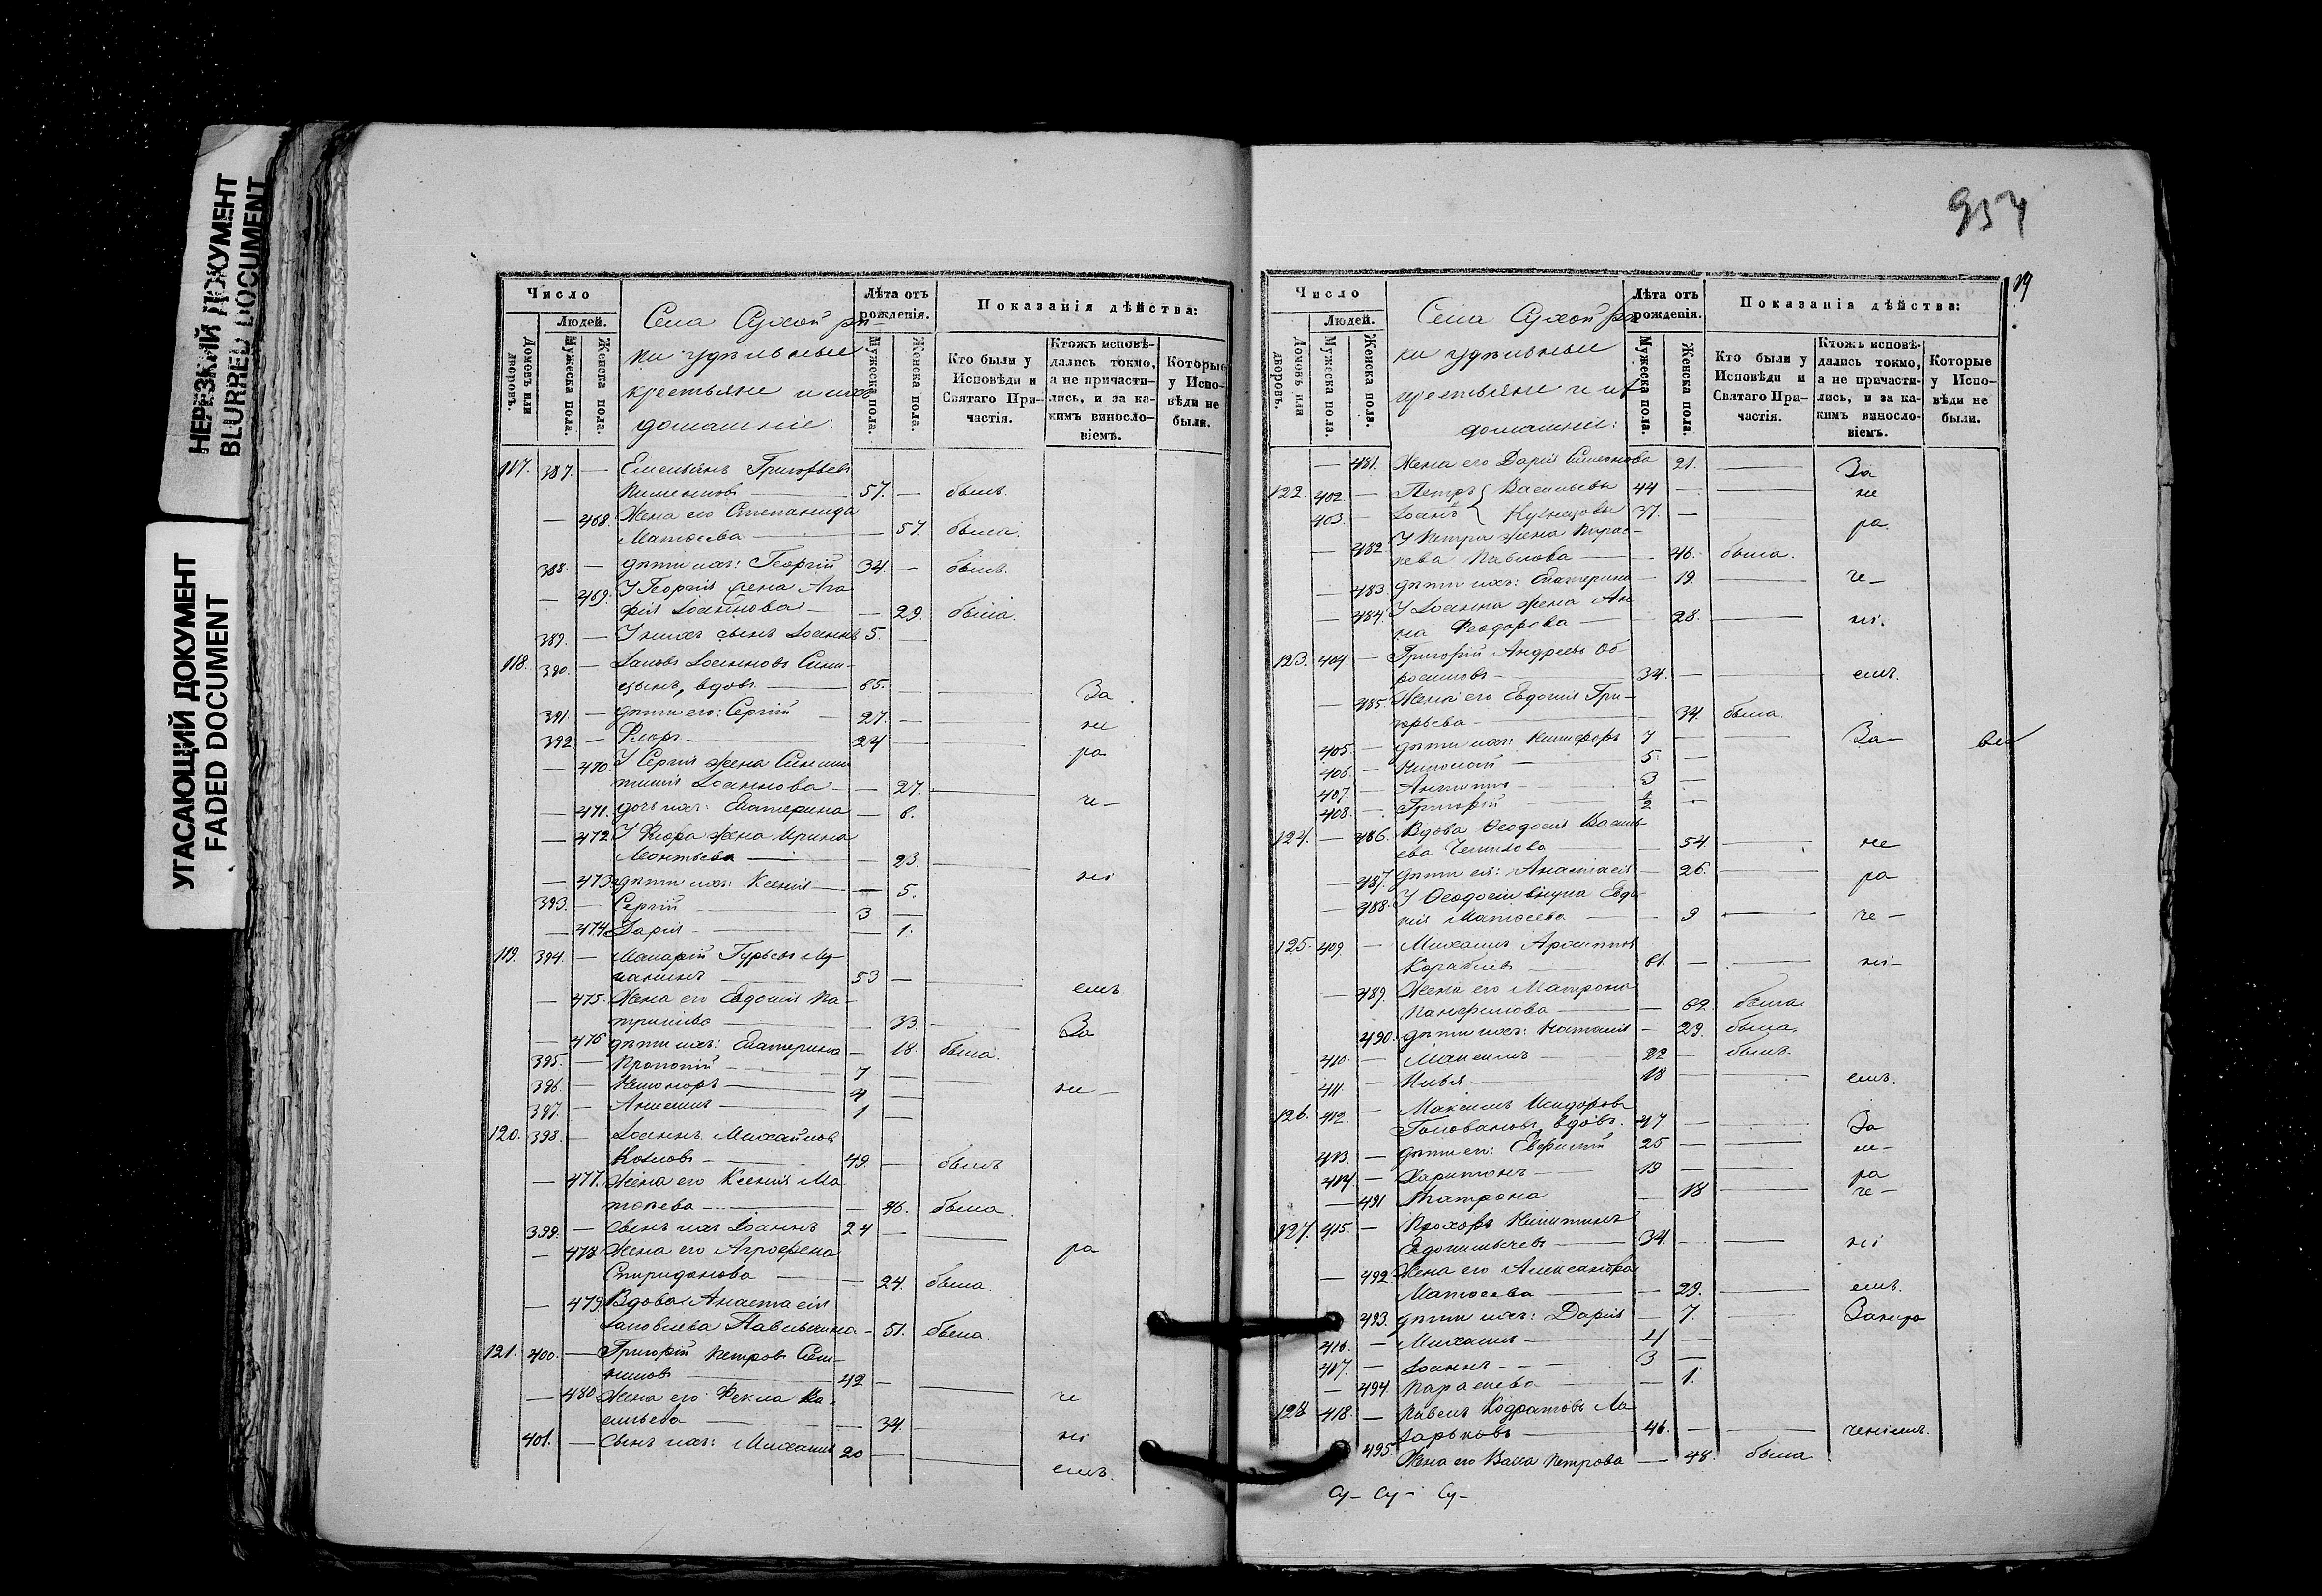 НЕРЕЗКИЙ ДОКУМЕНТ
BLURRED DOCUMENT
УГАСАЮЩИЙ ДОКУМЕНТ
FADED DOCUMENT
Число
Людей.
Домовъ или дворовъ.
Мужеска пола.
Женска пола.
Села Сухой рѣ-
ки удѣльные
крестьяне и ихъ
домашніе:
Лѣта отъ рожденія.
Мужеска пола.
Женска пола.
Показанія дѣйства:
Кто были у Исповѣди и Святаго При-частія.
Ктожъ исповѣ-дались токмо, а не причасти-лись, и за ка-кимъ винословіемъ.
Которые у Испо-вѣди не были.
117. 387. — Емельянъ Григорьевъ
57. — былъ.
— 468. Жена его Степанида
Матѳеева — 57. была.
388. — дѣти ихъ: Георгій 34. — былъ.
— 469. У Георгія жена Ага-
фія Іоаннова — 29. была.
389. — У нихъ сынъ Іоаннъ 5. —
118. 390. — Іаковъ Іоанновъ Сини-
цынъ, вдовъ — 65. — За
391. — дѣти его: Сергій — 27. — не
392. — Флоръ — 24 — ра
— 470. У Сергія жена
Іоаннова — 27. — че-
— 471. дочь ихъ: Екатерина — 6.
— 472. У Флора жена Ирина
Леонтьева — 23. —
— 473. дѣти ихъ: Ксенія — 5. ні
393. — Сергій — 3 —
— 474. Дарія — 1.
119. 394. — Макарій Гурьевъ
53 — емъ
— 475. Жена его Евдокія
33. — За
— 476 дѣти ихъ: Екатерина — 18. была.
395. — Прокопій — 7 —
396. — Никаноръ — 4 — не-
397. — Анисимъ — 1 —
120. 398. — Іоаннъ Михайловъ
Козловъ — 49. — былъ.
— 477. Жена его Ксенія
46. была.
399. — Сынъ ихъ Іоаннъ 24 —
— 478 Жена его Агрофена ра
Спиридонова — 24. была.
— 479. Вдова Анастасія
Іаковлева — 51. была.
121. 400. — Григорій Петровъ
42 —
— 480 Жена его Фекла Ва- че
сильева — 34. —
401. — Сынъ ихъ: Михаилъ 20 — ні
емъ.
954
19
Число
Людей.
Домовъ или дворовъ.
Мужеска пола.
Женска пола.
Села Сухой рѣ-
ки удѣльные
крестьяне и их
домашніе:
Лѣта отъ рожденія.
Мужеска пола.
Женска пола.
Показанія дѣйства:
Кто были у Исповѣди и Святаго При-частія.
Ктожъ исповѣ-дались токмо, а не причасти-лись, и за ка-кимъ винословіемъ.
Которые у Испо-вѣди не были.
— 481. Жена его Дарія Симеонова 21. — За
122. 402. — Петръ { Васильевы 44 — не
403. — Іоаннъ { Кузнецовы 37. — ра.
— 482 У Петра жена Парас-
кева Павлова — 46. была.
— 483. дѣти ихъ: Екатерина — 19. — че-
— 484. У Іоанна жена Ан-
на Ѳеодорова — 28. — ні.
123. 404. — Григорій Андреевъ Об-
росимовъ — 34. — емъ.
— 485. Жена его Евдокія Гри-
горьева — 34. была.
405. — дѣти ихъ: Никифоръ 7 — За-
406. — Николай — 5. —
407. — Антипъ — 3 —
408. — Григорій — 1/2 —
124. — 486. Вдова Ѳеодосія Василь-
ева — 54 — не
— 487. дѣти ея: Анастасія — 26. — ра
— 488. У Ѳеодосіи внука Евдо-
кія Матѳеева — 9 — че-
125. 409. — Михаилъ
Кораблевъ — 61. — ні-
— 489. Жена его Матрона
Панфилова — 62. была
490. дѣти ихъ: Наталія — 29. была.
410. — Максимъ — 22 — былъ.
411. — Илья — 18 — емъ.
126. 412. — Максимъ Исидоровъ
Головановъ, вдовъ. 47. — За
413. — дѣти его: 25 — не-
414. — Харитонъ — 19 — ра
— 491 Матрона — 18 — че-
127. 415. — Прохоръ Никитинъ
34. — ні
— 492. Жена его Александра
Матѳеева — 29. — емъ.
— 493. дѣти ихъ: Дарія — 7. — Занера
416. — Михаилъ — 4 —
417. — Іоаннъ — 3 —
— 494. Параскева — 1.
128 418. — Павелъ Кодратовъ Ла-
зарьковъ — 46. — ченіемъ.
495. Жена его Васса Петрова — 48. была
Су- Су- Су-